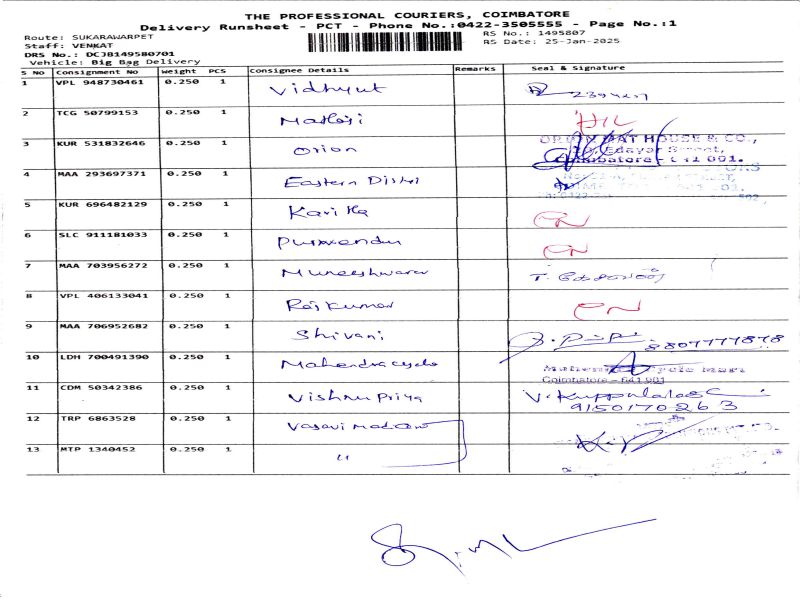 THE PROFESSIONAL COURIERS, COIMBATORE
Delivery Runsheet - PCT - Phone No.:0422-3505555 - Page No.:1
Route: SUKARAWARPET RS No.: 1495807
Staff: VENKAT RS Date: 25-Jan-2025
DRS No.: DCJB149580701
Vehicle: Big Bag Delivery
S No Consignment No Weight PCS Consignee Details Remarks Seal & Signature
1 VPL 948730461 0.250 1 Vidhyut
2 TCG 50799153 0.250 1
3 KUR 531832646 0.250 1 Orion
MAT HOUSE & CO.,
Coimbatore - 641 001.
4 MAA 293697371 0.250 1 Eastern Distri
5 KUR 696482129 0.250 1
6 SLC 911181033 0.250 1
7 MAA 703956272 0.250 1 Muneeshwaran
8 VPL 406133041 0.250 1 Rajkumar
9 MAA 706952682 0.250 1 Shivani 8807777878
10 LDH 700491390 0.250 1 Mahendracycle
Coimbatore - 641 001
11 CDM 50342386 0.250 1 Vishnupriya
9150170263
12 TRP 6863528 0.250 1
13 MTP 1340452 0.250 1 "